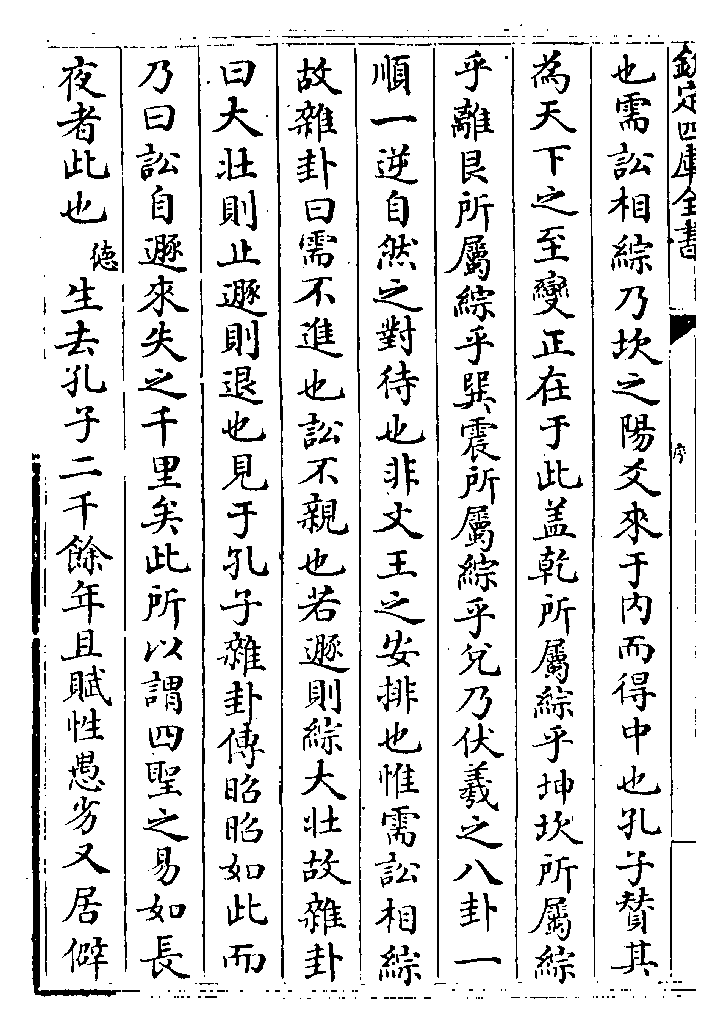 欽定四庫全書
序
也需訟相綜乃坎之陽爻來于内而得中也孔子贊其
為天下之至變正在于此盖乾所屬綜乎坤坎所屬綜
乎離艮所屬綜乎巽震所屬綜乎兌乃伏羲之八卦一
順一逆自然之對待也非文王之安排也惟需訟相綜
故雜卦曰需不進也訟不親也若遯則綜大壯故雜卦
曰大壯則止遯則退也見于孔子雜卦傳昭昭如此而
乃曰訟自遯來失之千里矣此所以謂四聖之易如長
夜者此也德生去孔子二千餘年且賦性愚劣又居僻